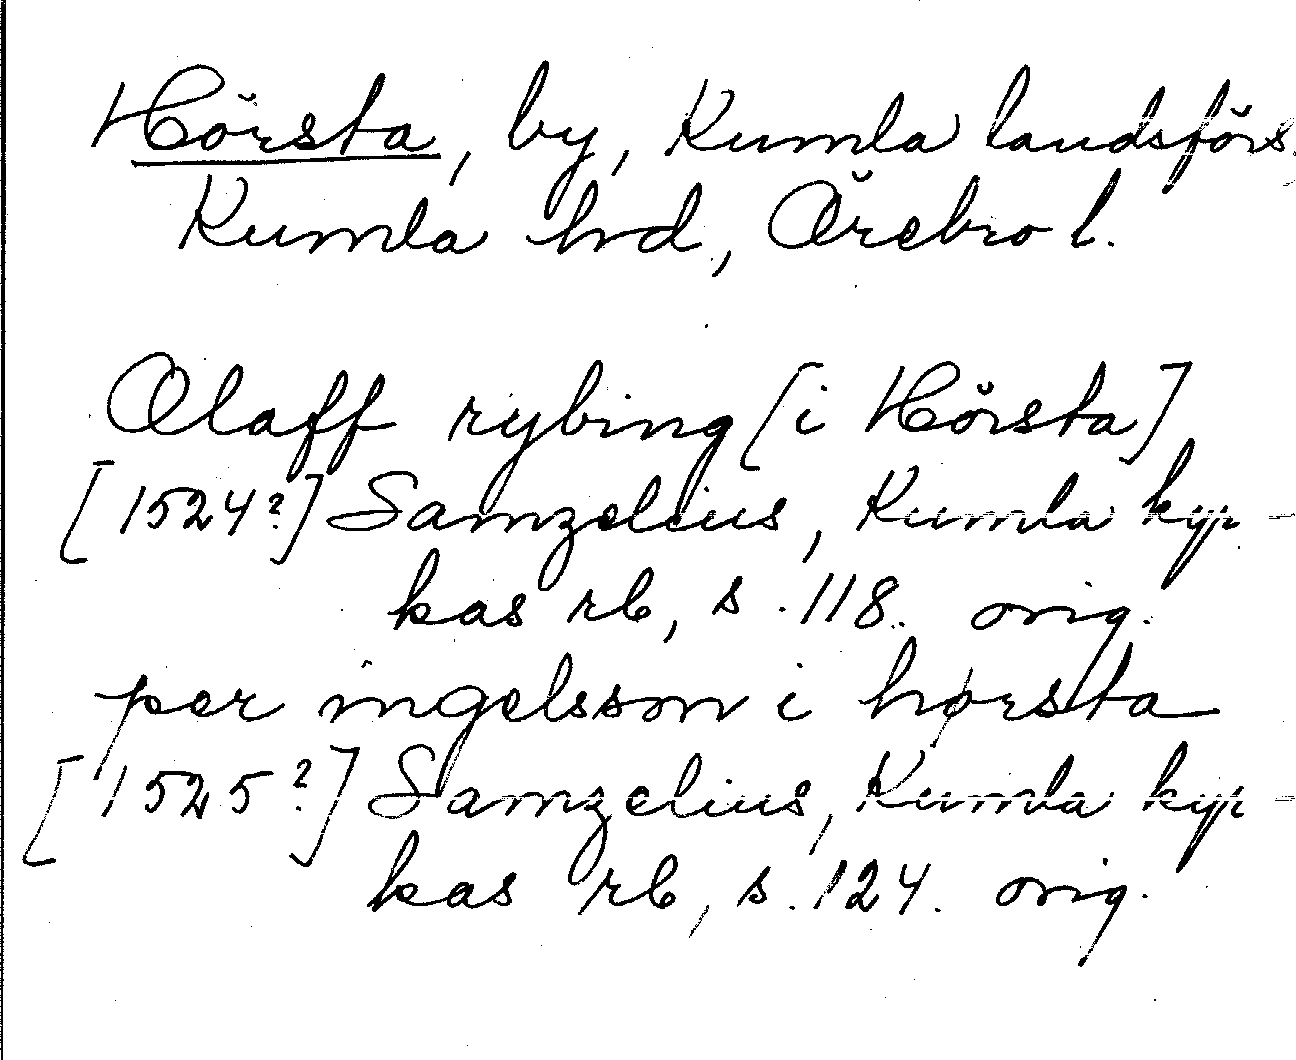 Hörsta, by, Kumla landsförs.
Kumla hrd, Örebro l.
Olaff rybing [i Hörsta]
[1524?] Samzelius, Kumla kyr-
kas rb, s. 118. orig.
per ingelsson i hørsta
[1525?] Samzelius, Kumla kyr-
kas rb, s. 124. orig.